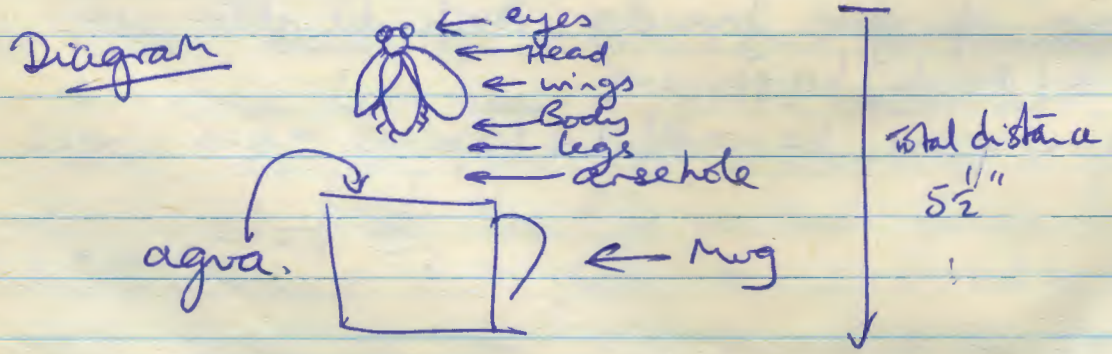 Diagram
eyes
Head
wings
Body
legs
arsehole
agua.
Mug
Total distance
5½"